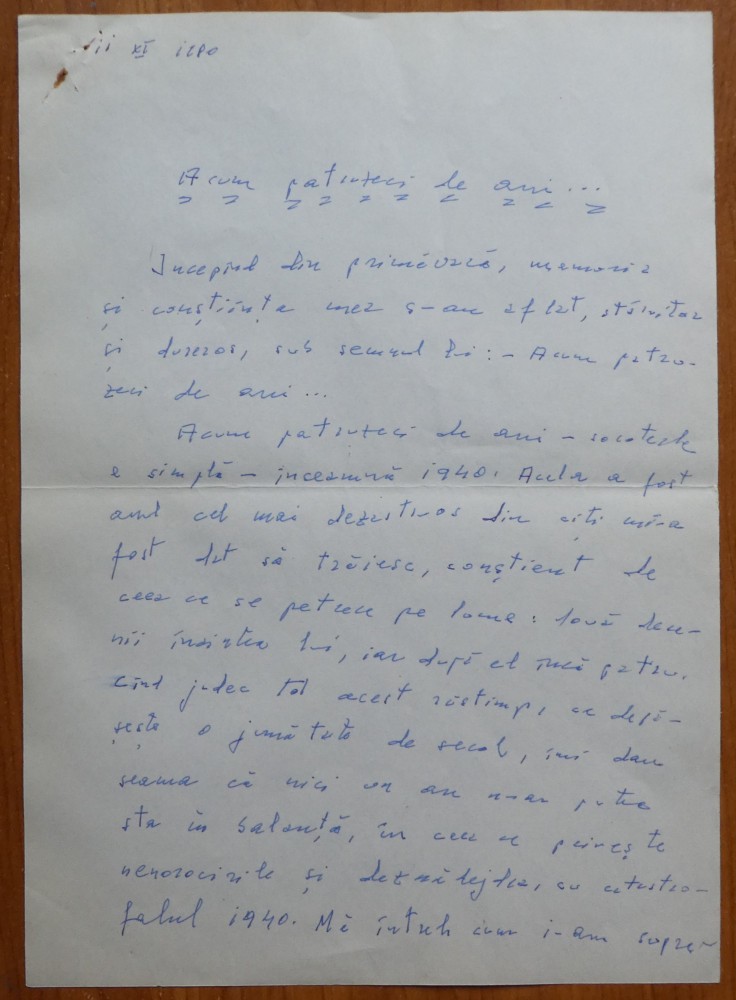 XI 1980
Acum patruzeci de ani...
Începînd din primăvară, memoria
și conștiința mea s-au aflat, stăruitor
și dureros, sub semnul lui: - Acum patru-
zeci de ani...
Acum patruzeci de ani - socoteala
e simplă - înseamnă 1940. Acela a fost
anul cel mai dezastruos din cîți mi-a
fost dat să trăiesc, conștient de
ceea ce se petrece pe lume: două dece-
nii înaintea lui, iar după el încă patru.
Cînd judec tot acest răstimp, ce depă-
șește o jumătate de secol, îmi dau
seama că nici un an n-ar putea
sta în balanță, în ceea ce privește
nenorocirile și deznădejdea, cu catastro-
falul 1940. Mă întreb cum i-am supra-